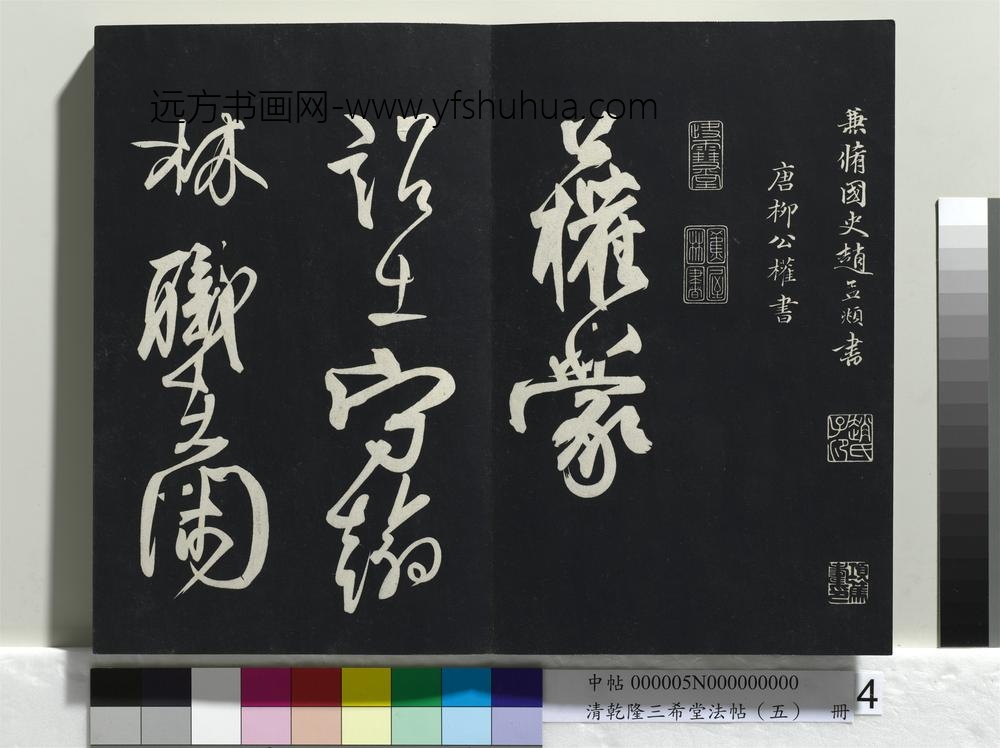 远方书画网-www.yfshuhua.com
兼脩國史趙孟頫書
趙氏子昂
唐柳公權書
公權蒙
詔出守翰
林職在閫
中帖 000005N000000000
清乾隆三希堂法帖（五） 册
4